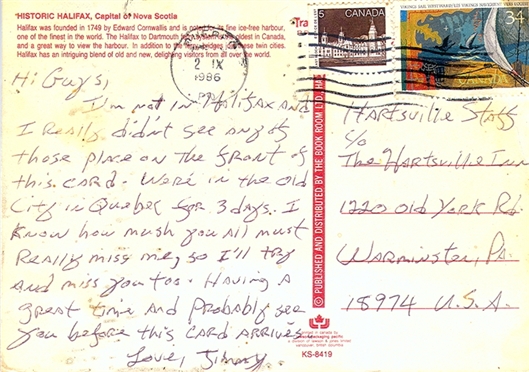 "HISTORIC HALIFAX, Capital of Nova Scotia
Halifax was founded in 1749 by Edward Cornwallis and is noted for its fine ice-free harbour,
one of the finest in the world. The Halifax to Dartmouth ferry is the oldest in Canada,
and a great way to view the harbour. In addition to the ferry, bridges join these twin cities.
Halifax has an intriguing blend of old and new, delighting visitors from all over the world.
2 IX
1986
5 CANADA
34
Hi Guys,
I'm not in Halifax and
I really didn't see any of
those place on the front of
this card. We're in the old
City in Quebec for 3 days. I
know how mush you all must
Really miss me, so I'll try
and miss you too. Having a
great time and probably see
you before this card arrives
Love, Jimmy
© PUBLISHED AND DISTRIBUTED BY THE BOOK ROOM LTD.
Hartsville Staff
c/o
The Hartsville Inn
1220 Old York Rd
Warminster, Pa.
18974 U.S.A.
Printed in Canada by
KS-8419